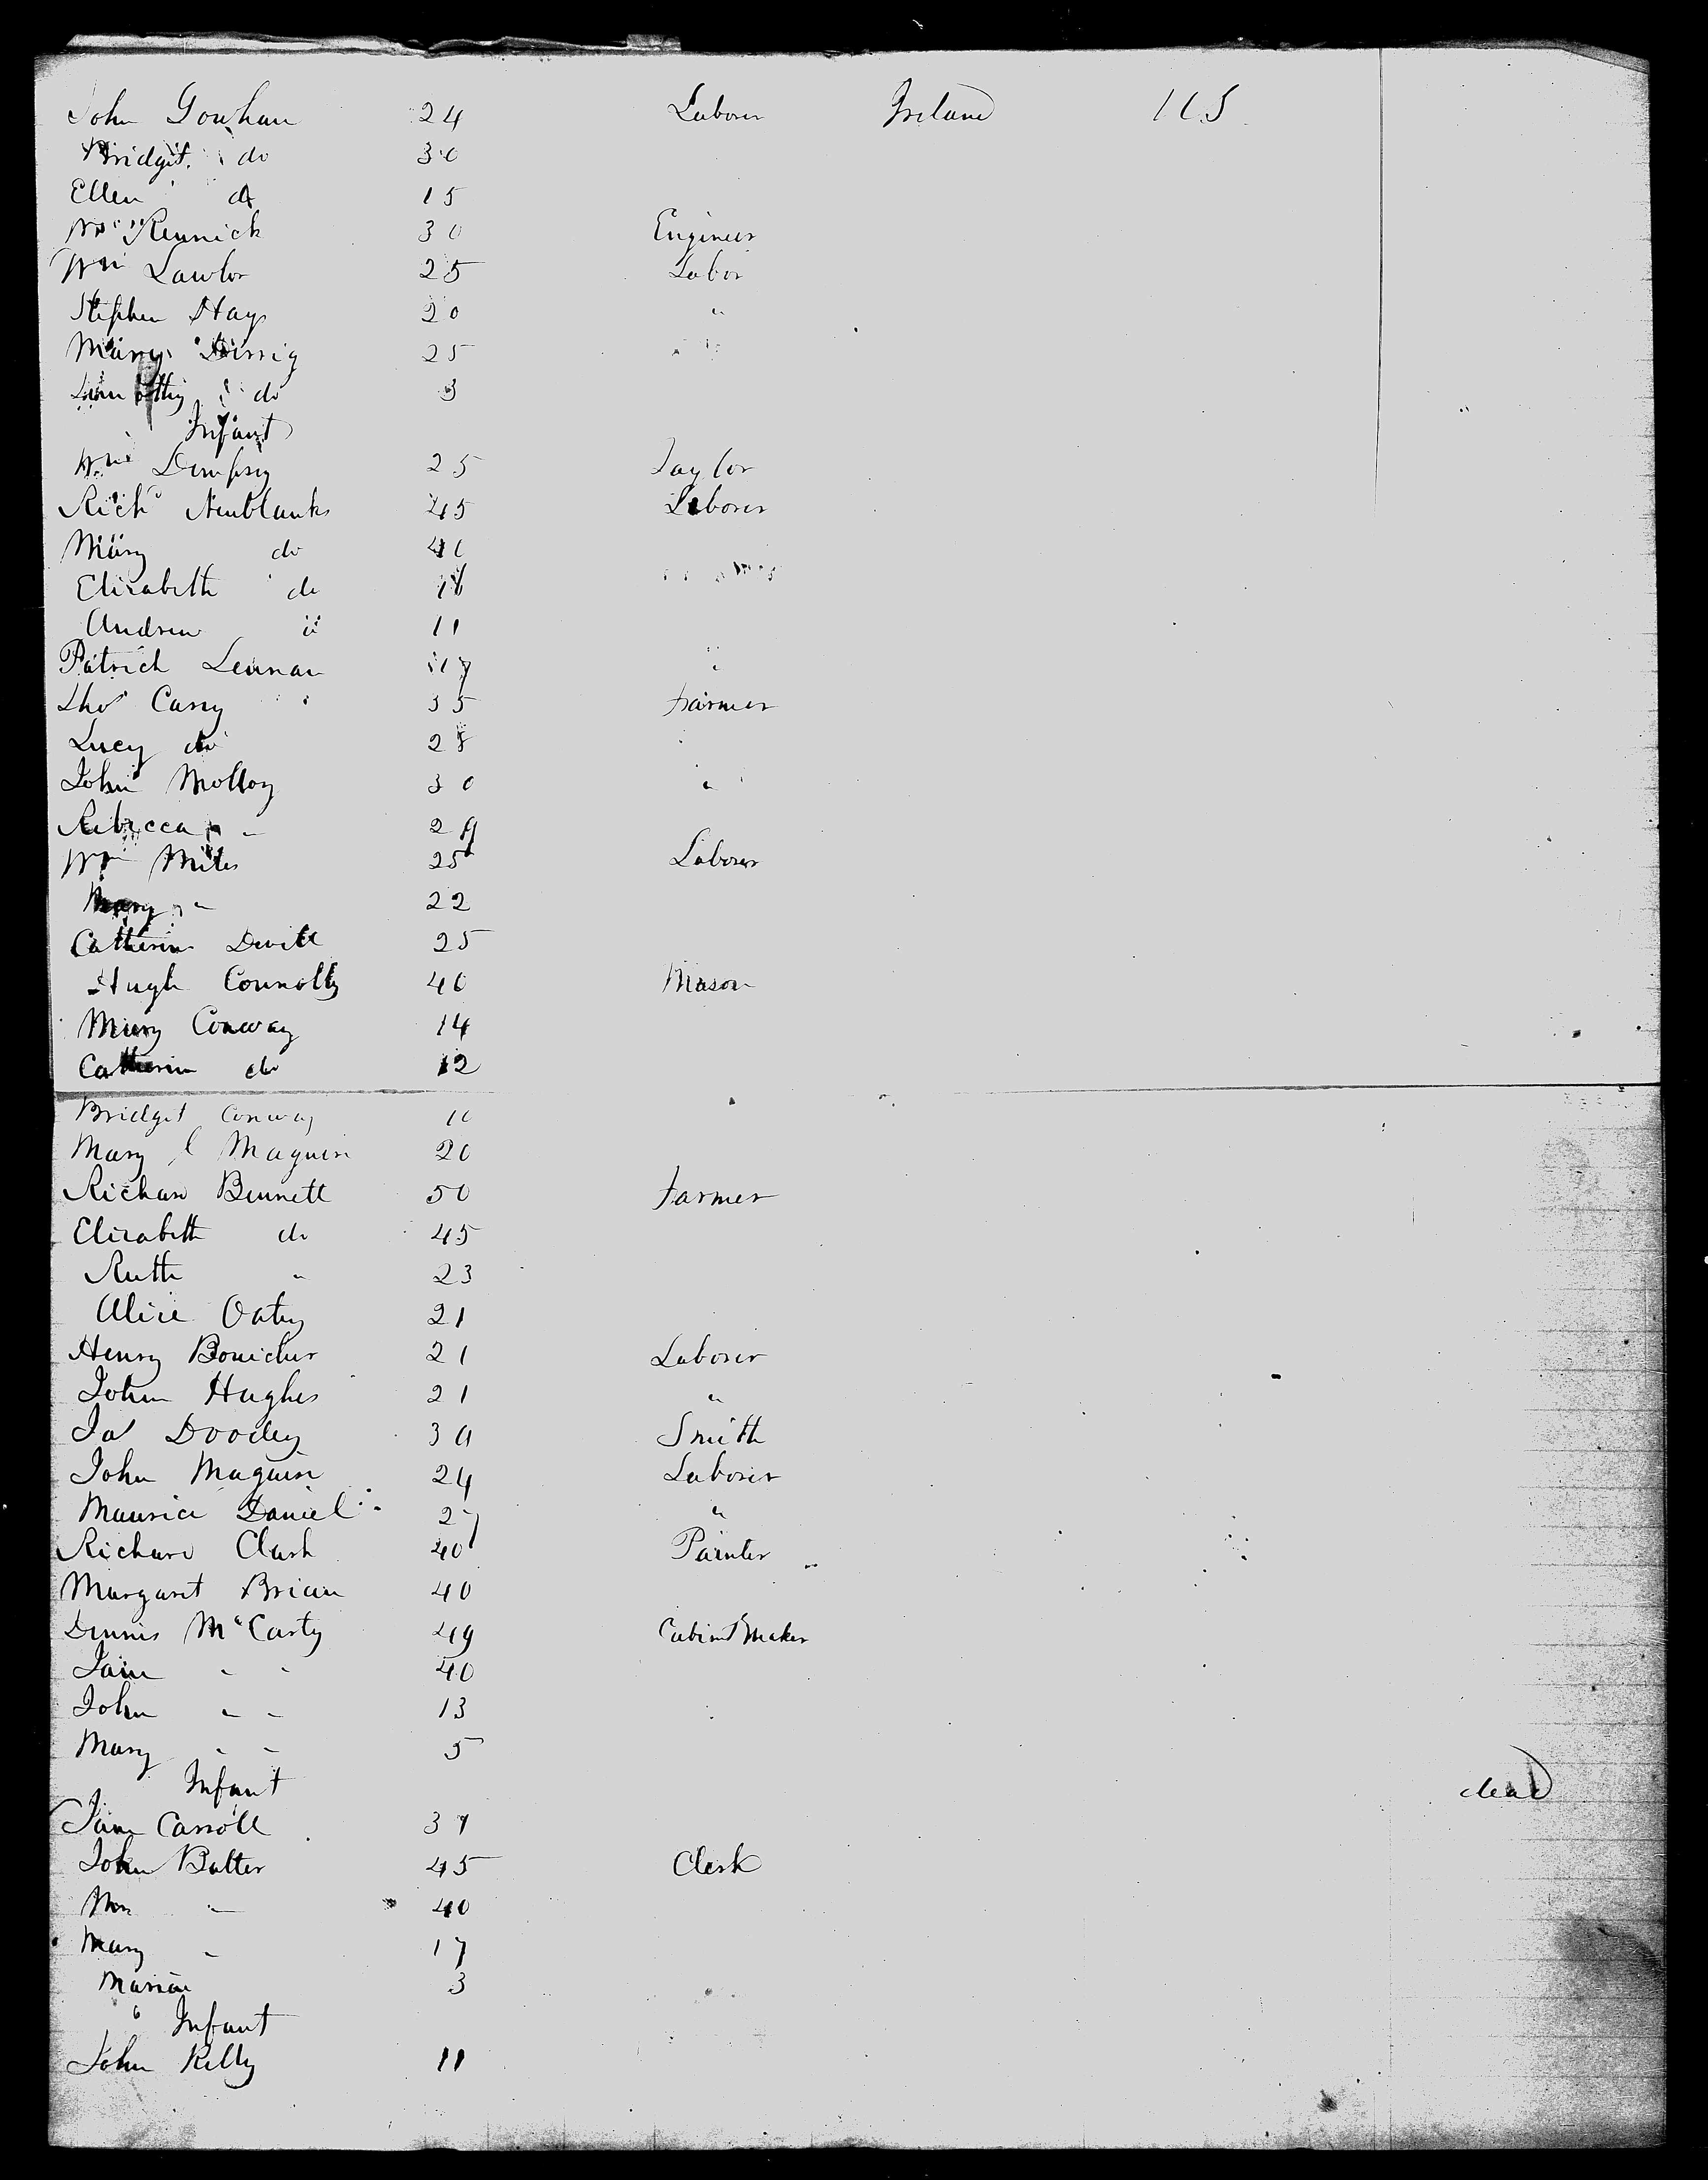 John Gouhan 24 Laborer Ireland 1 C S
Bridget do 30
Ellen do 15
Wm Rennick 30 Engineer
Wm Lawlor 25 Labor
Stephen Hays 20 "
Mary 25
do 3
Infant
Wm Dempsey 25 Taylor
Richd Newblanks 45 Laborer
Mary do 40
Elizabeth do
Andrew " 11
Patrick Lennan 17 "
Thos Carey 35 Farmer
Lucy do 28
John Molloy 30 "
Rebecca " 29
Wm Miles 25 Laborer
Mary " 22
Catherine Devitt 25
Hugh Connolly 40 Mason
Mary Conway 14
Catherine do 12
Bridget Conway 10
Mary Maguire 20
Richard Bennett 50 Farmer
Elizabeth do 45
Ruth " 23
Alice Oatey 21
Henry Boucher 21 Laborer
John Hughes 21 "
Jas Dooley 30 Smith
John Maguire 24 Laborer
Maurice Daniel 27 "
Richard Clark 40 Painter
Margaret Brian 40
Dennis McCarty 49 Cabinet Maker
Jane " " 40
John " " 13
Mary " " 5
Infant dead
Jane Carroll 37
John Butler 45 Clerk
Mrs " 40
Mary " 17
Maria 3
" Infant
John Kelly 11